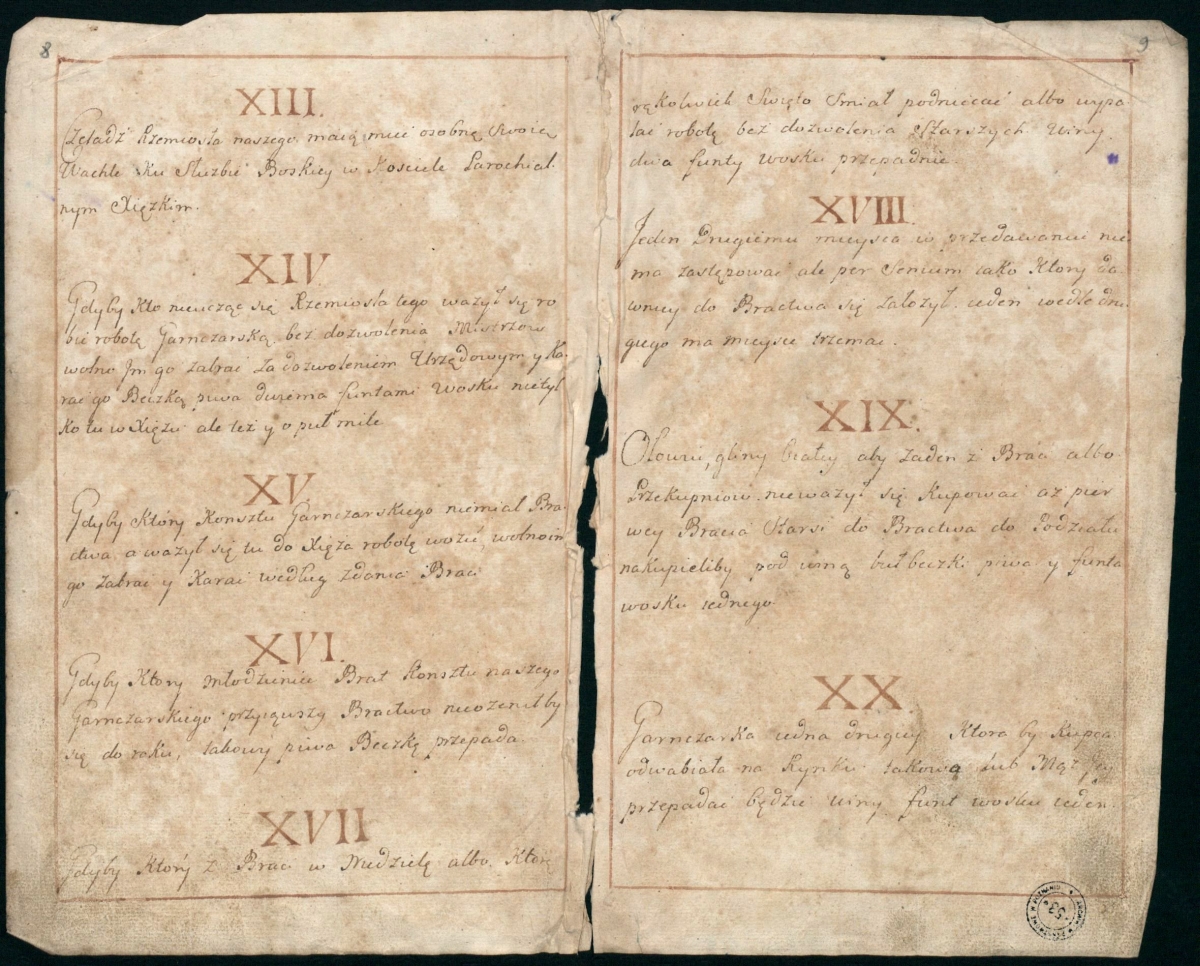 8
XIII.
Czeladź Rzemiosła naszego maią mieć osobne Swoie
Wachle Ku Służbie Boskiey w Kosciele Parochial
nym Xięzkim.
XIV.
Gdyby Kto nieucząc się Rzemiosła tego ważył się ro
bić robotę Garnczarską bez dozwolenia Mistrzow
wolno Jm go zabrać za dozwoleniem Urzędowym y Ka
rać go Beczką piwa dwiema funtami Wosku nietyl
ko tu w Xiężu ale też y o puł mile
XV.
Gdyby Który Konsztu Garnczarskiego niemiał Bra
ctwa, a ważył się tu do Xięża robotę wozić, wolno im
go zabrać y Karać według zdania Braci
XVI.
Gdyby Ktory młodzieniec Brat Konsztu naszego
Garnczarskiego przyiąwszy Bractwo nieożeniłby
się do roku, takowy piwa Beczkę przepada.
XVII
Gdyby Który z Braci w Niedzielę albo Ktore
9
Kolwiek Swięto Smiał podniecać albo wypa
lać robotę bez dozwolenia Starszych Winy
dwa funty wosku przepadnie.
XVIII.
Jeden Drugiemu mieysca w przedawaniu nie
ma zastępować ale per Senium iako Ktory da
wniey do Bractwa się założył ieden wedle dru
giego ma mieysce trzemać.
XIX.
Ołowiu, gliny białey aby żaden z Braci albo
Przekupniow nieważył się Kupować aż pier
wey Bracia Starsi do Bractwa do Podziału
nakupieliby pod winą puł beczki piwa y funta
wosku iednego
XX.
Garnczarka iedna drugiey Ktoraby Kupca
odwabiała na Rynku takowa lub Mąż Jey
przepadać będzie winy funt wosku ieden